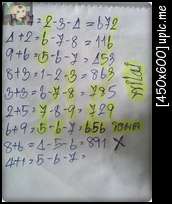 7=2-3-4=672
4+2=6-7-8=116
9+6=5-6-7=453
8+3=1-2-3=863
3+3=6-7-8=785
2+5=7-8-9=729
6+9=5-6-7=656
8+6=4-5-6=891 X
4+1=5-6-7=
[450x600] upic.me